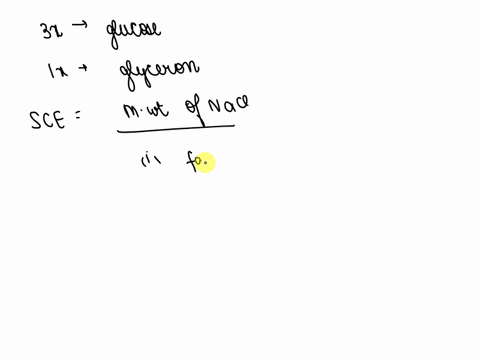 3x → glucose
1x → glyceron
SCE = m.wt of NaCl
(i) fo.